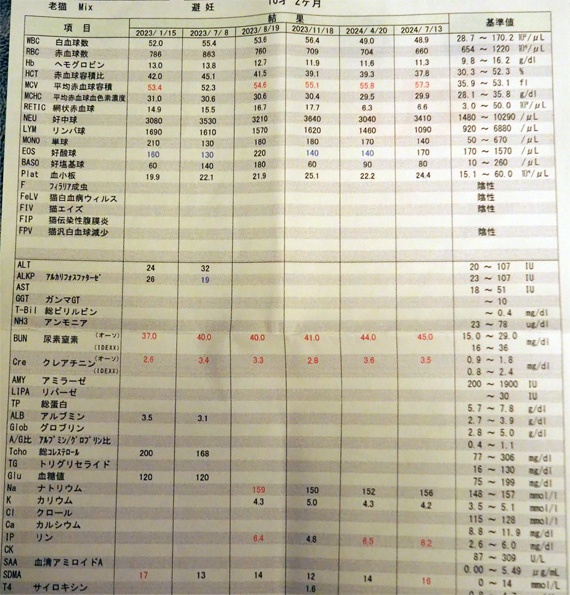 老猫 Mix 避妊 10才 2ヶ月
結果
項目 2023/1/15 2023/7/8 2023/8/19 2023/11/18 2024/4/20 2024/7/13 基準値
WBC 白血球数 52.0 55.4 53.6 56.4 49.0 48.9 28.7 ~ 170.2 10²/μL
RBC 赤血球数 786 863 760 709 704 660 654 ~ 1220 10⁴/μL
Hb ヘモグロビン 13.0 13.8 12.7 11.9 11.6 11.3 9.8 ~ 16.2 g/dl
HCT 赤血球容積比 42.0 45.1 41.5 39.1 39.3 37.8 30.3 ~ 52.3 %
MCV 平均赤血球容積 53.4 52.3 54.6 55.1 55.8 57.3 35.9 ~ 53.1 fl
MCHC 平均赤血球血色素濃度 31.0 30.6 30.6 30.4 29.5 29.9 28.1 ~ 35.8 g/dl
RETIC 網状赤血球 14.9 15.5 16.7 17.7 6.3 6.6 3.0 ~ 50.0 10³/μL
NEU 好中球 3080 3530 3210 3640 3040 3410 1480 ~ 10290 /μL
LYM リンパ球 1690 1610 1570 1620 1460 1090 920 ~ 6880 /μL
MONO 単球 210 130 180 180 140 170 50 ~ 670 /μL
EOS 好酸球 160 130 220 140 140 170 170 ~ 1570 /μL
BASO 好塩基球 60 140 180 60 90 80 10 ~ 260 /μL
Plat 血小板 19.9 22.1 21.9 25.1 22.2 24.4 15.1 ~ 60.0 10⁴/μL
F フィラリア成虫 陰性
FeLV 猫白血病ウィルス 陰性
FIV 猫エイズ 陰性
FIP 猫伝染性腹膜炎
FPV 猫汎白血球減少 陰性
ALT 24 32 20 ~ 107 IU
ALKP アルカリフォスファターゼ 26 19 23 ~ 107 IU
AST 18 ~ 51 IU
GGT ガンマGT ~ 10
T-Bil 総ビリルビン ~ 0.4 mg/dl
NH3 アンモニア 23 ~ 78 ug/dl
BUN 尿素窒素 (オーソ) 37.0 40.0 40.0 41.0 44.0 45.0 15.0 ~ 29.0 mg/dl
(IDEXX) 16 ~ 36
Cre クレアチニン (オーソ) 2.6 3.4 3.3 2.8 3.6 3.5 0.9 ~ 1.8 mg/dl
(IDEXX) 0.8 ~ 2.4
AMY アミラーゼ 200 ~ 1900 IU
LIPA リパーゼ ~ 30 IU
TP 総蛋白 5.7 ~ 7.8 g/dl
ALB アルブミン 3.5 3.1 2.7 ~ 3.9 g/dl
Glob グロブリン 2.8 ~ 5.0 g/dl
A/G比 アルブミン/グロブリン比 0.4 ~ 1.1
Tcho 総コレステロール 200 168 77 ~ 306 mg/dl
TG トリグリセライド 16 ~ 130 mg/dl
Glu 血糖値 120 120 75 ~ 199 mg/dl
Na ナトリウム 159 150 152 156 148 ~ 157 mmol/l
K カリウム 4.3 5.0 4.3 4.2 3.5 ~ 5.1 mmol/l
Cl クロール 115 ~ 128 mmol/l
Ca カルシウム 8.8 ~ 11.9 mg/dl
IP リン 6.4 4.8 6.5 6.2 2.6 ~ 6.0 mg/dl
CK 87 ~ 309 U/L
SAA 血清アミロイドA 0.00 ~ 5.49 μg/mL
SDMA 17 13 14 12 14 16 0 ~ 14
T4 サイロキシン 1.6